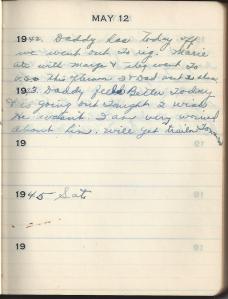 MAY 12
1942. Daddy has Today off
we went out to rig. Marie
ate with Marge & they went to
This 2 & Dad went to show
1943. Daddy feels Better Today
& is going out Tonight I wish
he wasn't. I am very worried
about him. will get trailer Tomorrow
19
1945 Sat.
19